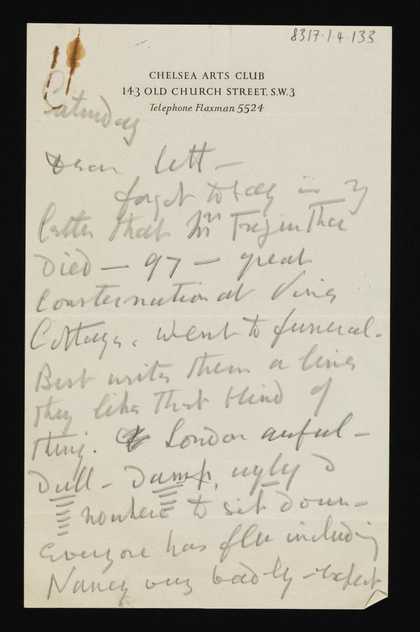 8317.1.4 133
CHELSEA ARTS CLUB
143 OLD CHURCH STREET, S.W.3
Telephone Flaxman 5524
Saturday
Dear Lett —
forgot to say in my
letter that Mrs
died — 97 — great
consternation at Vine
Cottage. Went to funeral.
Best write them a line
they like that kind of
thing. London awful —
Dull — Damp, ugly &
nowhere to sit down —
Everyone has flu including
Nancy very badly — expect